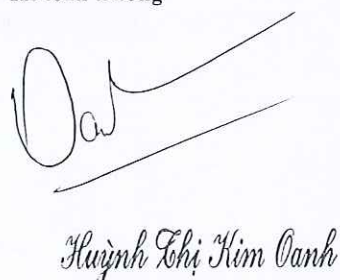 Oanh
Huỳnh Thị Kim Oanh